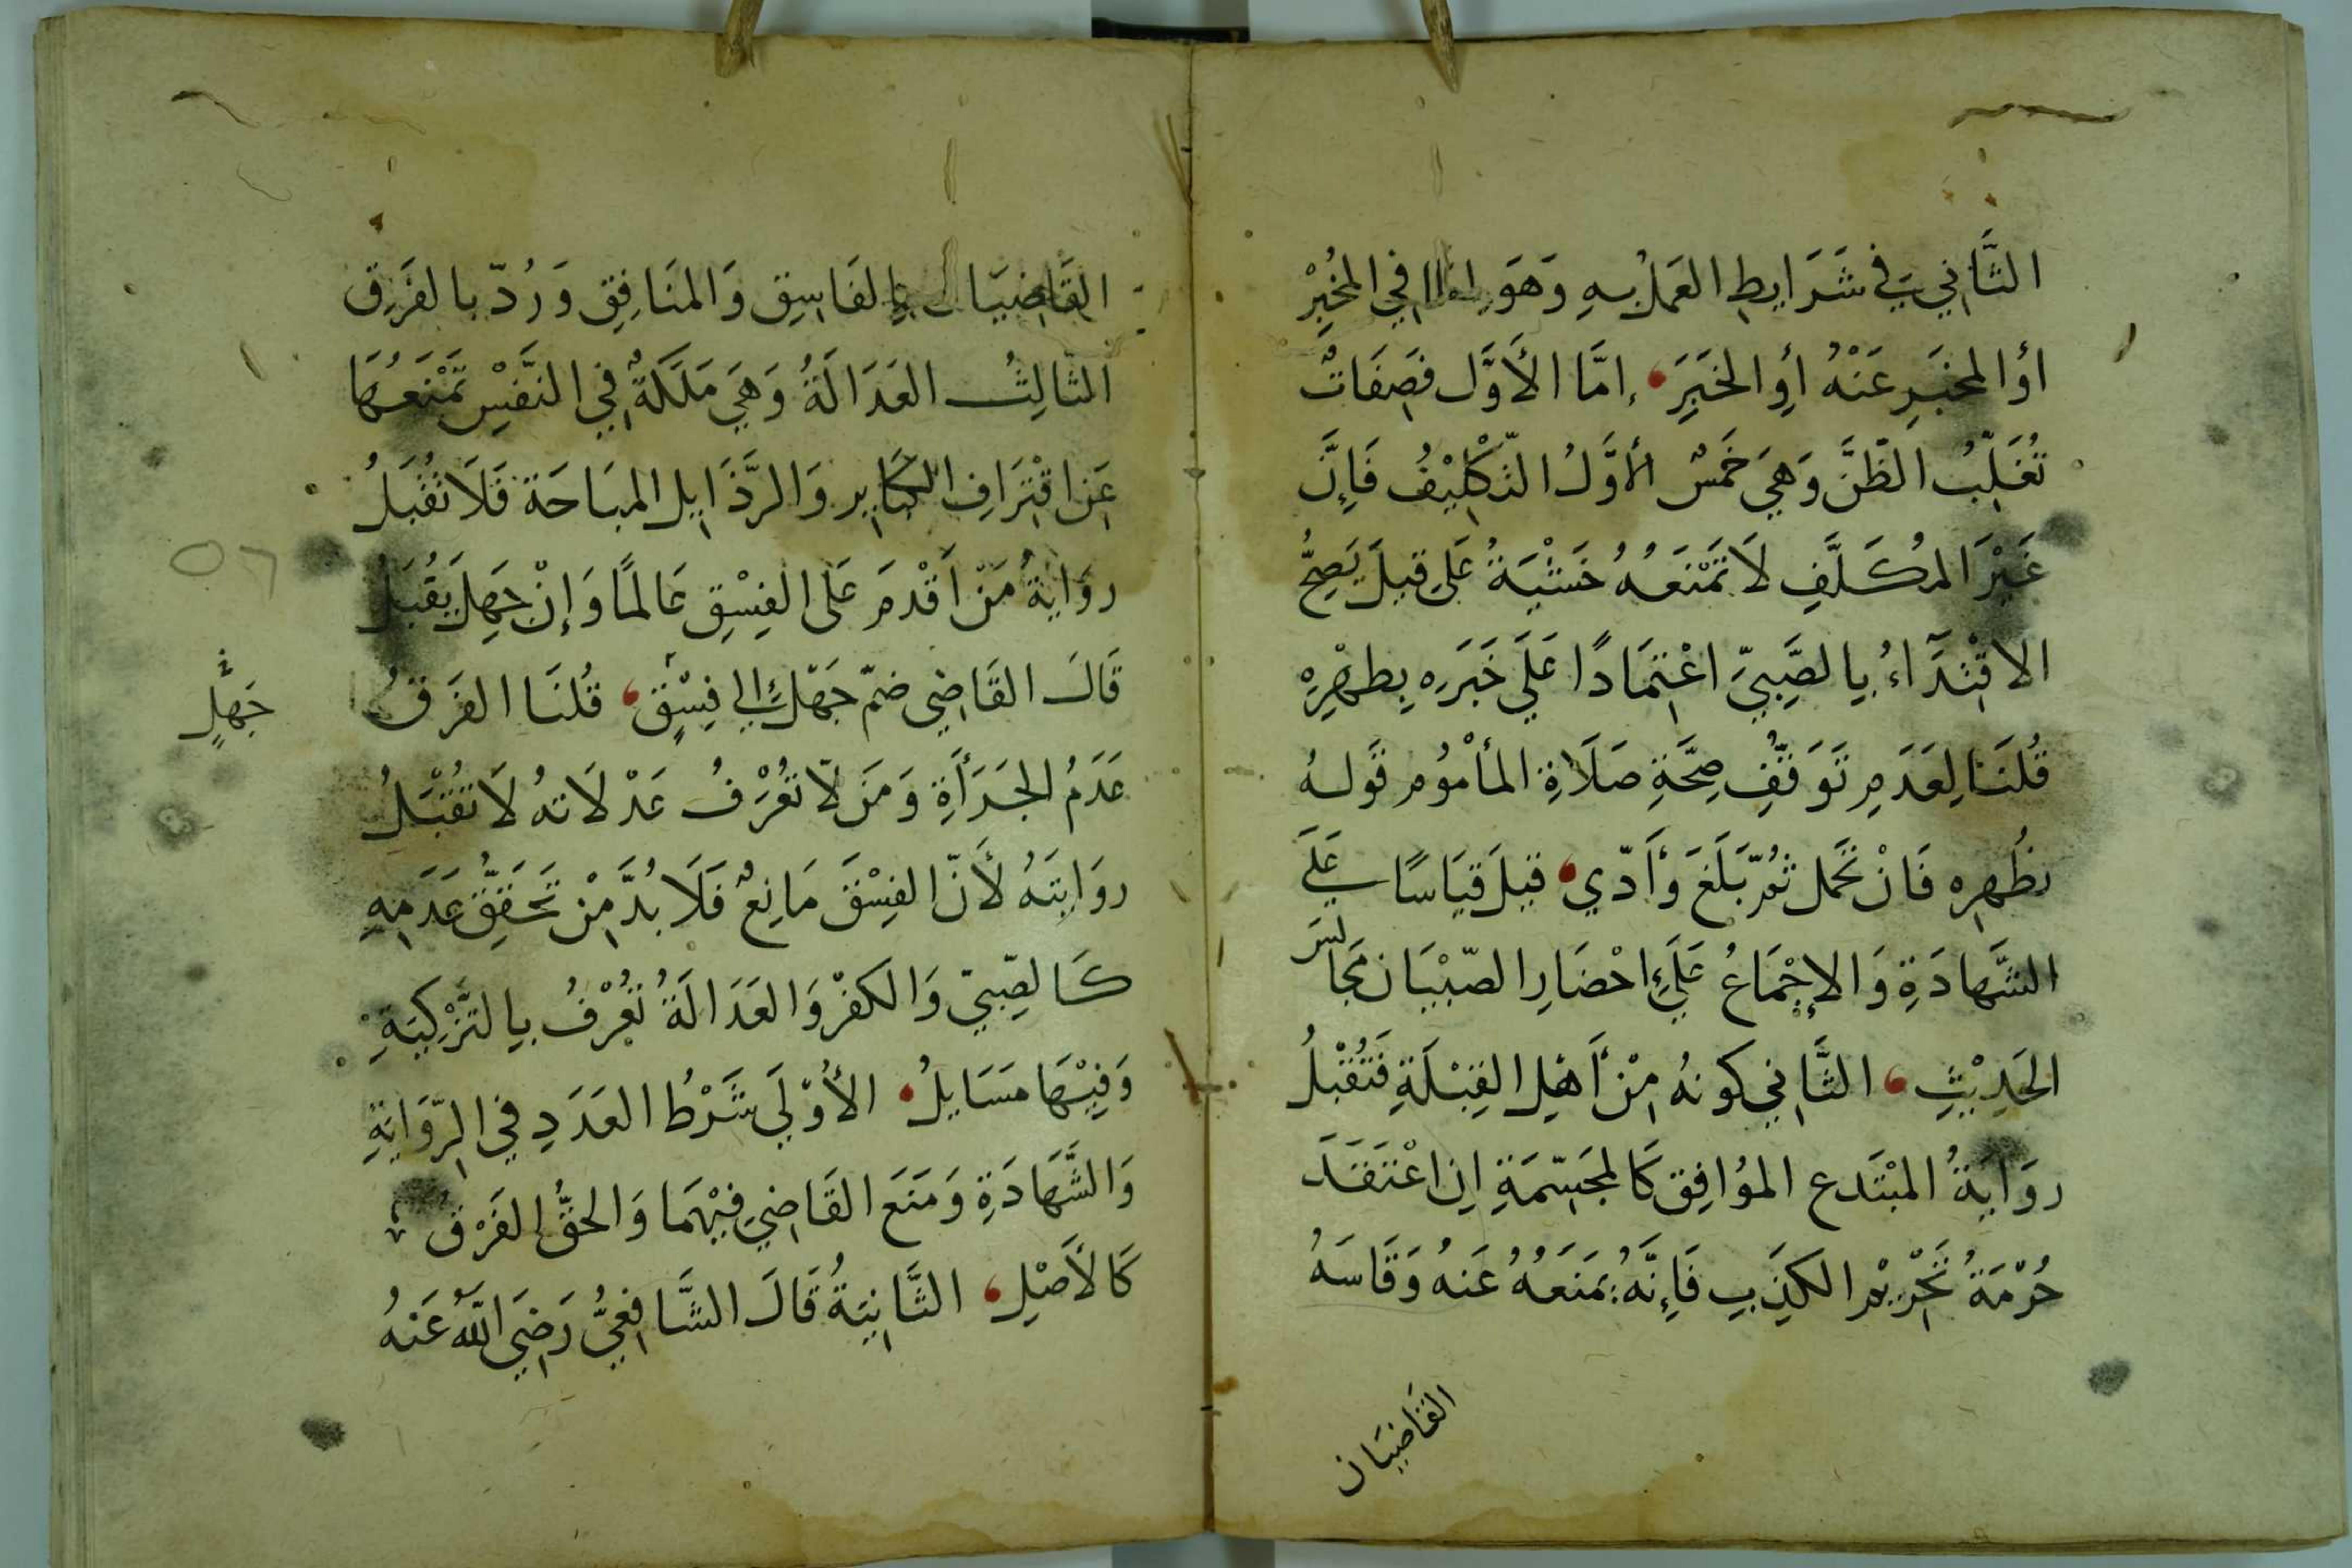 الثَّانِي فِي شَرَايطِ العَمَلِ بِهِ وَهَوَ إمَّا فِي المُخْبِرِ
أوْ المخبَرِ عَنْهُ أوِ الخبَرِ، إمَّا الأَوَّل فصِفَاتٌ
تُغَلِّبُ الظَّنَّ وَهِيَ خَمسٌ الأوَّلُ التّكْلِيْفُ فَإِنَّ
غَيْرَ المُكَلَّفِ لَا تَمْنَعُهُ خَشْيَةُ عَلى قيلَ يَصِحُّ
الاقْتِدَاءُ بِالصَّبِيِّ اعْتِمَادًا عَلَى خَبَرِه بِطهْرِهِ
قُلنَا لِعَدَمِ تَوَقُّفِ صِحَّةِ صَلَاةِ المأمُومِ قَوله
بطُهرِه فَانْ تحَمل ثمَّ بَلَغَ وَأَدّي، قيلَ قيَاسًا عَلَى
الشَّهادَةِ وَالإجْمَاعُ عَلَى احْضَارِ الصّبْيَان مَجَالسَ
الحَدِيْثِ، الثَّانِي كونهُ مِنْ أَهْلِ القِبْلَةِ فَتُقْبلُ
روَايَةُ المبْتَدع الموُافِق كَالمجَسّمَةِ إنِ اعْتَقَدَ
حُرْمَةُ تَحْرِيْمِ الكذِبِ فَإِنَّهُ يمَنَعَهُ عَنهُ وَقَاسَهُ
القَاضيَان
القَاضِيَان بِالفَاسِق وَالمنَافِقِ وَرُدّ بالفَرقِ
الثّالِثُ العَدَالَةُ وَهِيَ مَلَكَةٌ فِي النَّفسِ تَمْنَعُهَا
عَن اقْتِرَافِ الكبَايرِ وَالرَّذَايلِ المبَاحَة فَلَا تُقْبَلُ
روَايَةُ مَنْ أَقْدمَ عَلى الفِسْقِ عَالمًا وَإنْ جَهِلَ يقُبَلُ
قَالَ القَاضِي ضمّ جَهْلٌ إلي فِسْقٍ، قُلنَا الفَرَقُ
جَهْلٍ
عَدَمُ الجَرَأَةِ وَمَن لَّا تعُرْفُ عَدْلاته لَا تقُبْلُ
روَايتَهُ لأَنَّ الفِسْقَ مَانِعٌ فَلَا بُدَّ مِنْ تَحَقُّقِ عَدَمِهِ
كَالصّبيّ وَالكفرْ وَالعَدَالَةُ تُعْرفُ بِالتَّزكِيَةِ
وَفِيْهَا مسَايلُ، الأُوْلَى شَرْطُ العَدَدِ فِي الرِّوَايةِ
وَالشَّهَادَةِ وَمَنَعَ القَاضِي فِيْهمَا وَالحَقُّ الفَرْقُ
كَالأَصْلِ، الثَّانِيَةُ قَالَ الشَّافِعِيُّ رَضِيَ اللَّهُ عَنهُ
٥٦